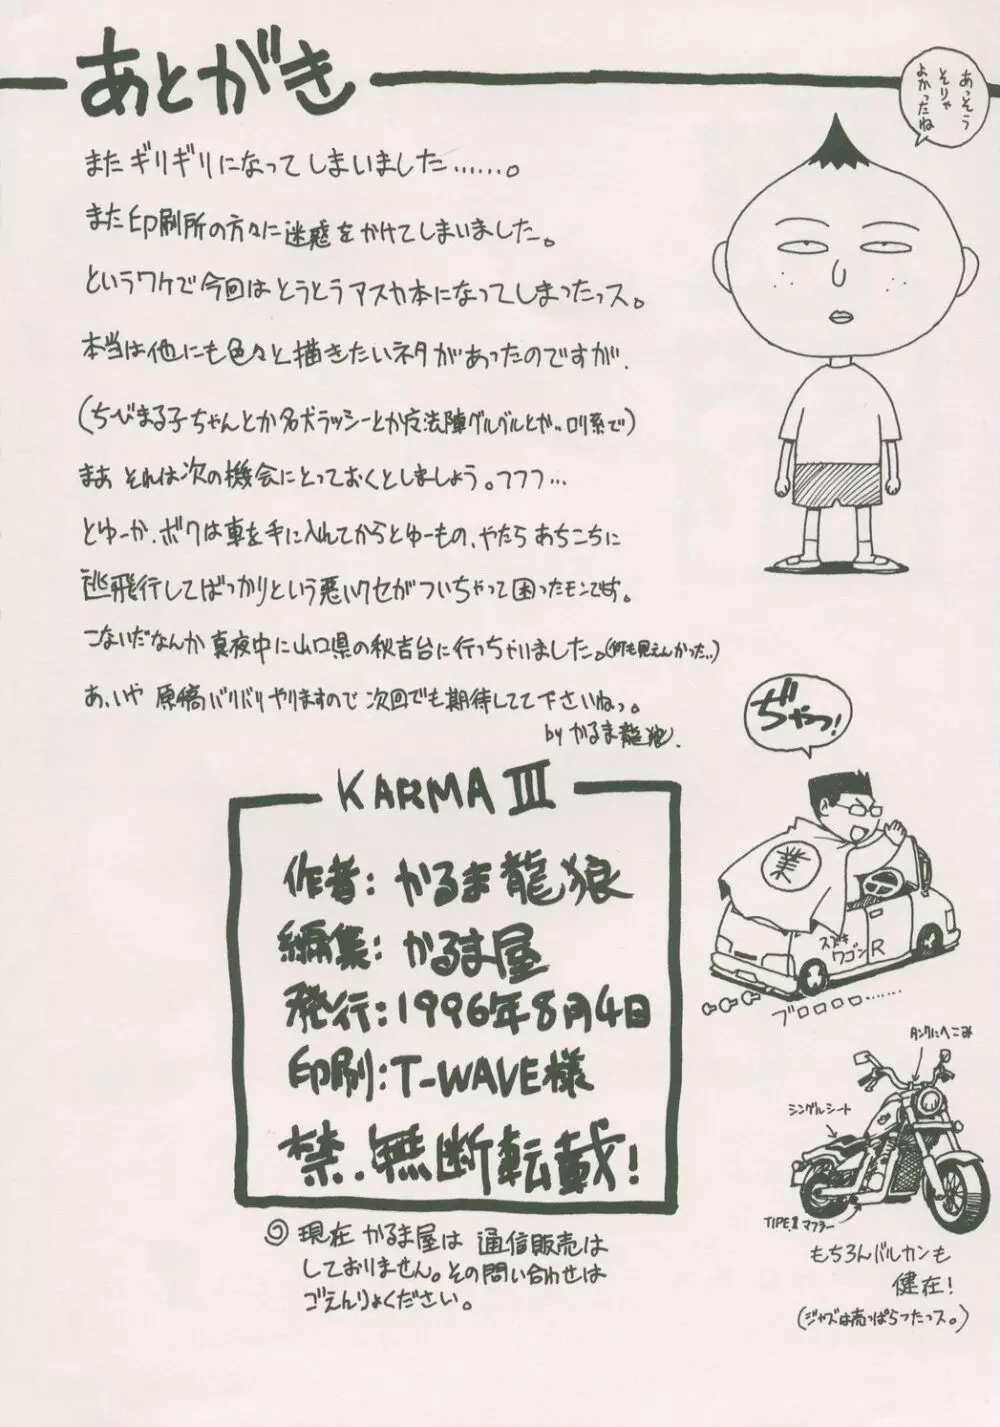 あとがき
あっそう
そりゃ
よかったね
またギリギリになってしまいました……。
また印刷所の方々に迷惑をかけてしまいました。
というワケで今回はとうとうアスカ本になってしまったっス。
本当は他にも色々と描きたいネタがあったのですが、
(ちびまる子ちゃんとか名犬ラッシーとか魔法陣グルグルとか…ロリ系で)
まあ それは次の機会にとっておくとしましょう。フフフ…
とゆーか、ボクは車を手に入れてからとゆーもの、やたら あちこちに
逃飛行してばっかりという悪いクセがついちゃって困ったモンです。
こないだなんか 真夜中に山口県の秋吉台に行っちゃいました。(何も見えんかった…)
あ、いや 原稿バリバリやりますので 次回でも期待してて下さいねっ。
by かるま龍狼.
ぢゃっ!
KARMA III
作者:かるま龍狼
編集:かるま屋
発行:1996年8月4日
印刷:T-WAVE様
禁.無断転載!
業
スズキ
ワゴンR
ブロロロロ……
タンクにへこみ
シングルシート
TIPE.II マフラー
もちろんバルカンも
健在!
(ジャズは売っぱらったっス。)
◎ 現在 かるま屋は 通信販売は
しておりません。その問い合わせは
ごえんりょください。